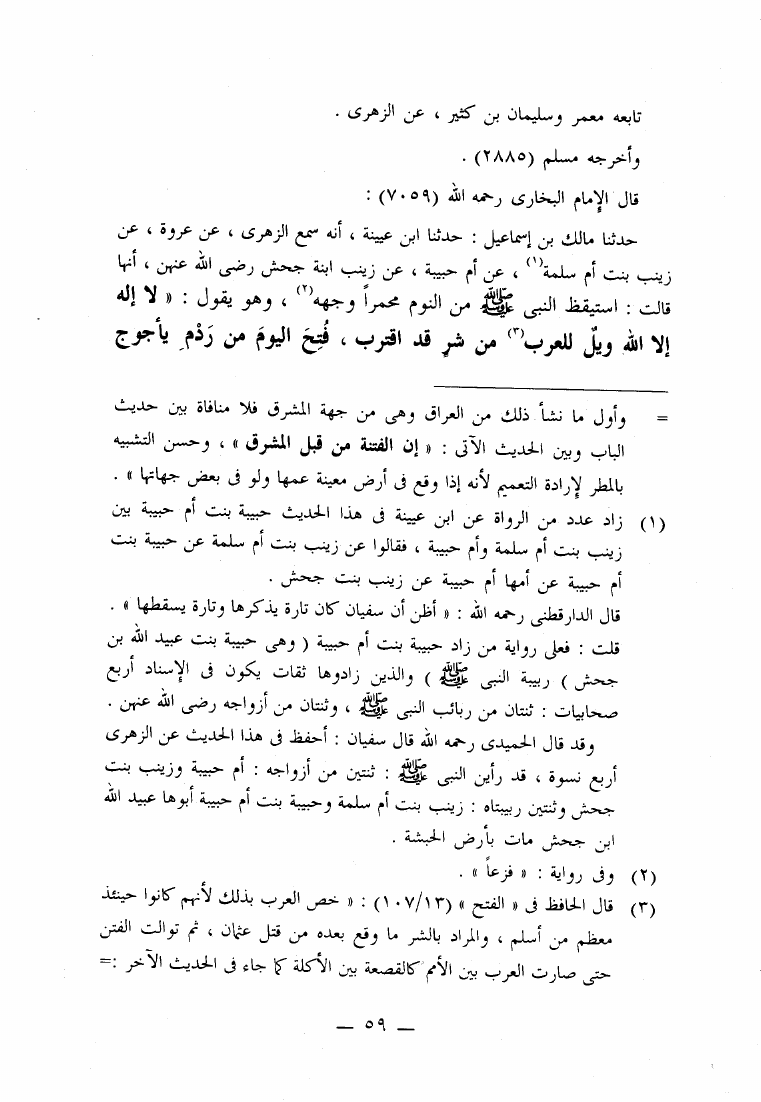 تابعه معمر وسليمان بن كثير ، عن الزهرى .
وأخرجه مسلم (٢٨٨٥) .
قال الإمام البخارى رحمه الله (٧٠٥٩) :
حدثنا مالك بن إسماعيل : حدثنا ابن عيينة ، أنه سمع الزهرى ، عن عروة ، عن
زينب بنت أم سلمة(١) ، عن أم حبيبة ، عن زينب ابنة جحش رضى الله عنهن ، أنها
قالت : استيقظ النبى ﷺ من النوم محمراً وجهه(٢) ، وهو يقول : « لا إله
إلا الله ويلٌ للعرب(٣) من شرٍ قد اقترب ، فُتِحَ اليومَ من رَدْمِ يأجوج
= وأول ما نشأ ذلك من العراق وهى من جهة المشرق فلا منافاة بين حديث
الباب وبين الحديث الآتى : « إن الفتنة من قبل المشرق » ، وحسن التشبيه
بالمطر لإرادة التعميم لأنه إذا وقع فى أرض معينة عمها ولو فى بعض جهاتها » .
(١) زاد عدد من الرواة عن ابن عيينة فى هذا الحديث حبيبة بنت أم حبيبة بين
زينب بنت أم سلمة وأم حبيبة ، فقالوا عن زينب بنت أم سلمة عن حبيبة بنت
أم حبيبة عن أمها أم حبيبة عن زينب بنت جحش .
قال الدارقطنى رحمه الله : « أظن أن سفيان كان تارة يذكرها وتارة يسقطها » .
قلت : فعلى رواية من زاد حبيبة بنت أم حبيبة ( وهى حبيبة بنت عبيد الله بن
جحش ) ربيبة النبى ﷺ ) والذين زادوها ثقات يكون فى الإسناد أربع
صحابيات : ثنتان من ربائب النبى ﷺ ، وثنتان من أزواجه رضى الله عنهن .
وقد قال الحميدى رحمه الله قال سفيان : أحفظ فى هذا الحديث عن الزهرى
أربع نسوة ، قد رأين النبى ﷺ : ثنتين من أزواجه : أم حبيبة وزينب بنت
جحش وثنتين ربيبتاه : زينب بنت أم سلمة وحبيبة بنت أم حبيبة أبوها عبيد الله
ابن جحش مات بأرض الحبشة .
(٢) وفى رواية : « فزعاً » .
(٣) قال الحافظ فى « الفتح » (١٠٧/١٣) : « خص العرب بذلك لأنهم كانوا حينئذ
معظم من أسلم ، والمراد بالشر ما وقع بعده من قتل عثمان ، ثم توالت الفتن
حتى صارت العرب بين الأمم كالقصعة بين الأكلة كما جاء فى الحديث الآخر :=
— ٥٩ —